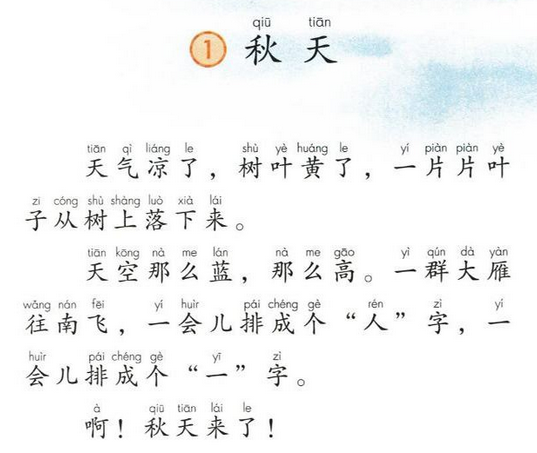 qiū tiān
1 秋天
tiān qì liáng le shù yè huáng le yí piàn piàn yè
天气凉了，树叶黄了，一片片叶
zi cóng shù shàng luò xià lái
子从树上落下来。
tiān kōng nà me lán nà me gāo yì qún dà yàn
天空那么蓝，那么高。一群大雁
wǎng nán fēi yí huìr pái chéng gè rén zì yí
往南飞，一会儿排成个“人”字，一
huìr pái chéng gè yī zì
会儿排成个“一”字。
à qiū tiān lái le
啊！秋天来了！